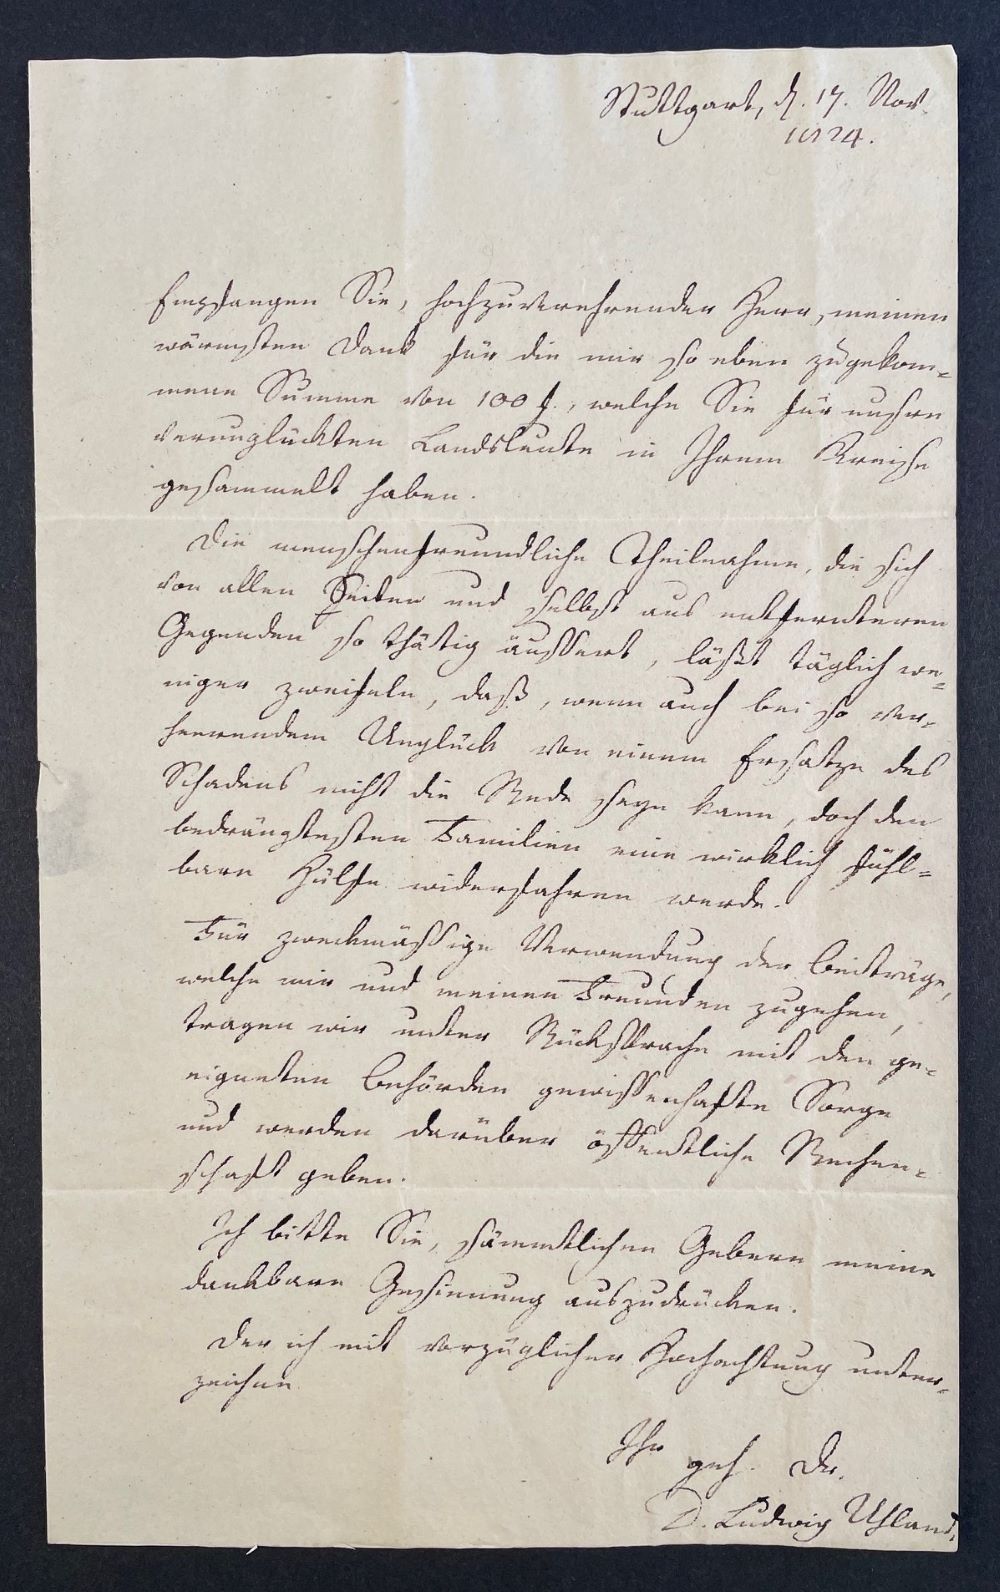 Stuttgart, d. 17. Nov.
1824.
Empfangen Sie, hochzuverehrender Herr, meinen
wärmsten Dank für die mir so eben zugekom-
mene Summe von 100 f., welche Sie für unsre
verunglückten Landsleute in Ihrem Kreise
gesammelt haben.
Die menschenfreundliche Theilnahme, die sich
von allen Seiten und selbst aus entfernteren
Gegenden so thätig äussert, läßt täglich we-
niger zweifeln, daß, wenn auch bei so ver-
heerendem Unglück von einem Ersatze des
Schadens nicht die Rede seyn kann, doch den
bedrängtesten Familien eine wirklich fühl-
bare Hülfe widerfahren werde.
Für zweckmässige Verwendung der Beiträge,
welche mir und meinen Freunden zugehen,
tragen wir unter Rücksprache mit den ge-
eigneten Behörden gewissenhafte Sorge
und werden darüber öffentliche Rechen-
schaft geben.
Ich bitte Sie, sämmtlichen Gebern meine
dankbare Gesinnung auszudrücken.
Der ich mit vorzüglicher Hochachtung unter-
zeichne
Ihr
geh. Dr.
D. Ludwig Uhland.